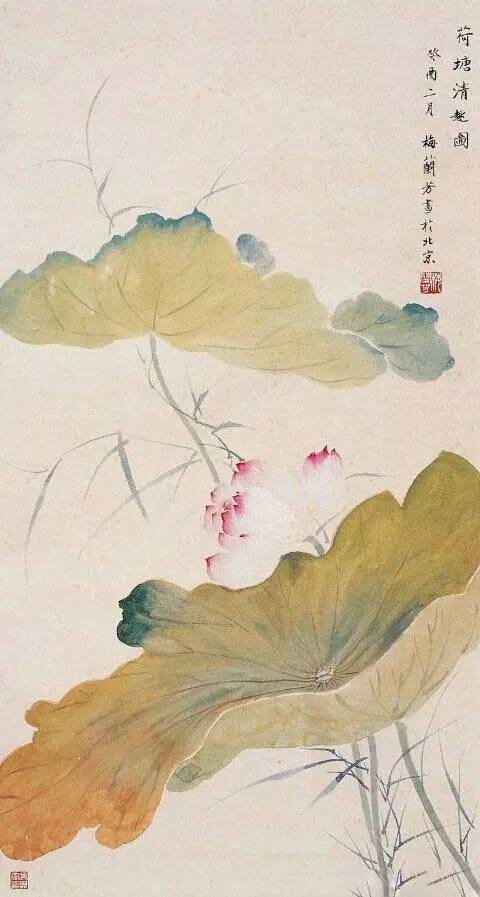 荷塘清趣圖
癸酉二月 梅蘭芳畫於北京